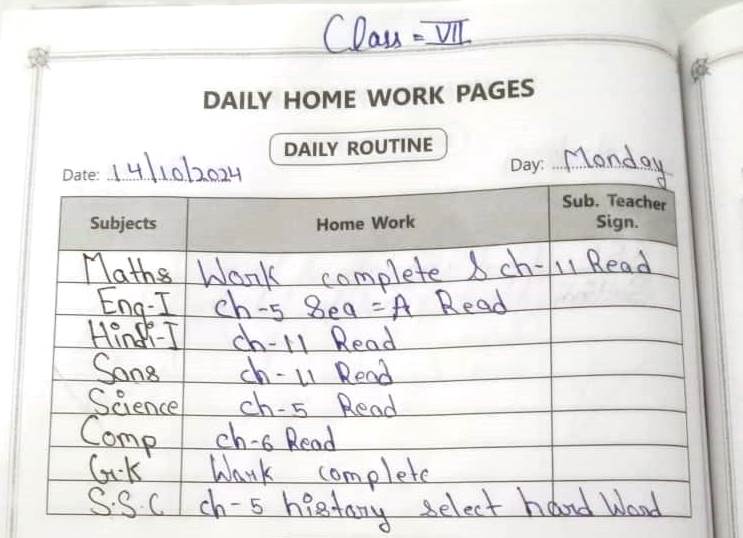 Class = VII
DAILY HOME WORK PAGES
DAILY ROUTINE
Date: 14/10/2024 Day: Monday
Subjects Home Work Sub. Teacher Sign.
Maths Work complete & ch-11 Read
Eng-I ch-5 Sea = A Read
Hindi-I ch-11 Read
Sans ch-11 Read
Science ch-5 Read
Comp ch-6 Read
G.K Work complete
S.S.C ch-5 history select hard Word